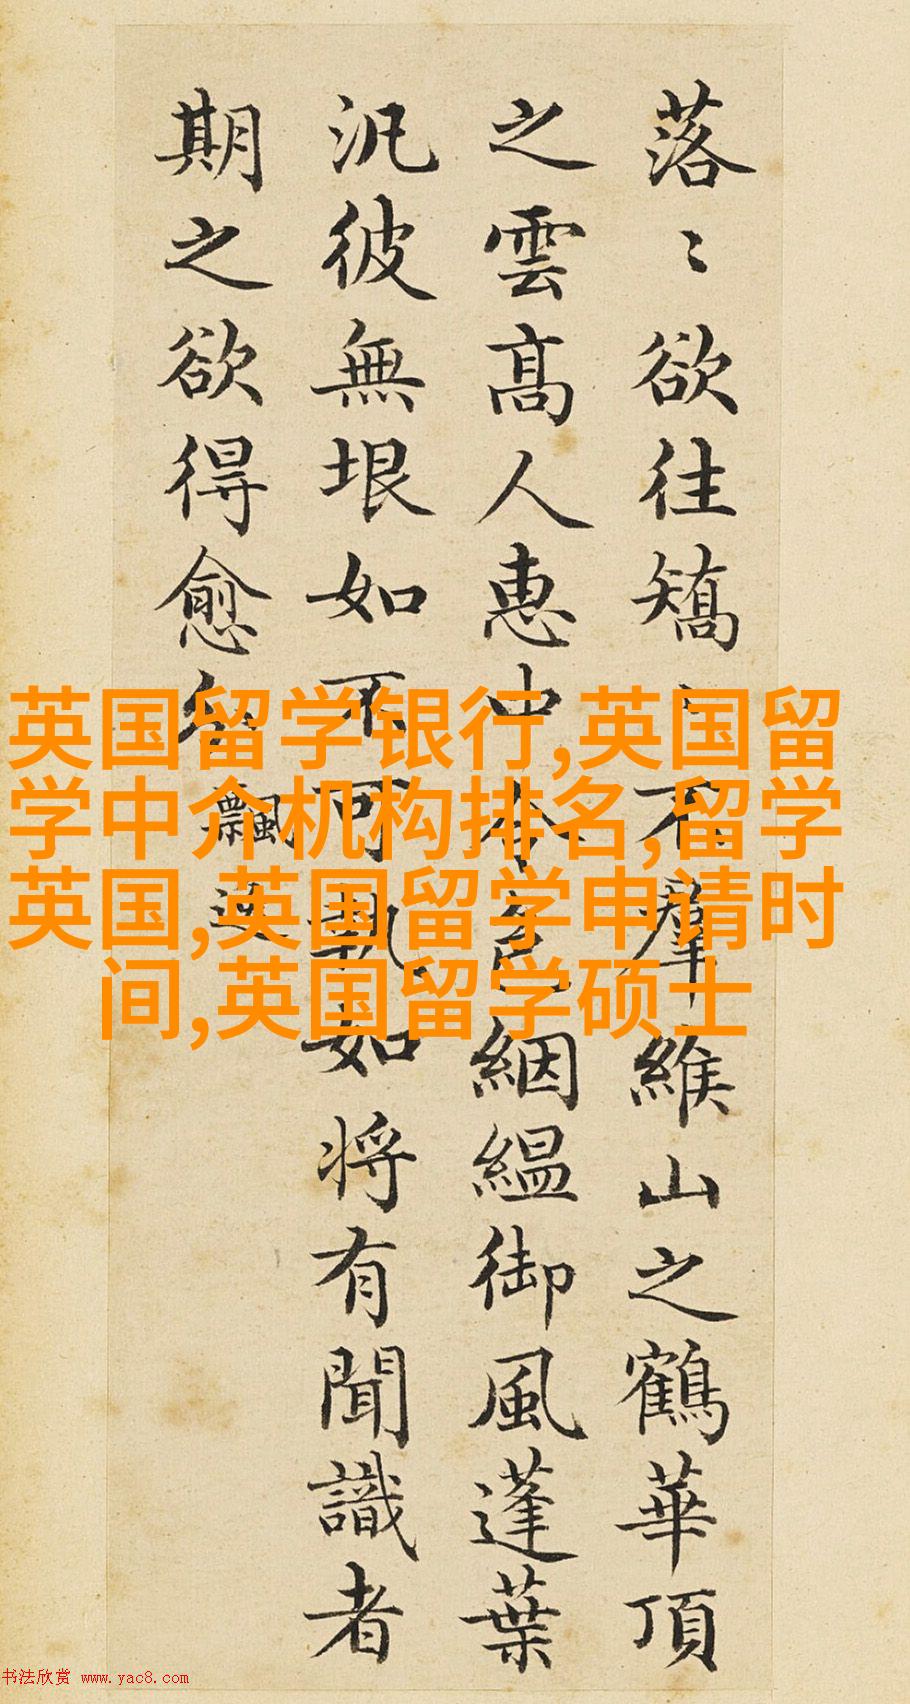 落〻欲往矯〻不羣緱山之鶴華頂
之雲高人惠中令色絪緼御風蓬葉
汎彼無垠如不可執如将有聞識者
期之欲得愈分
飄逸
英国留学银行,英国留
学中介机构排名,留学
英国,英国留学申请时
间,英国留学硕士
书法欣赏 www.yac8.com